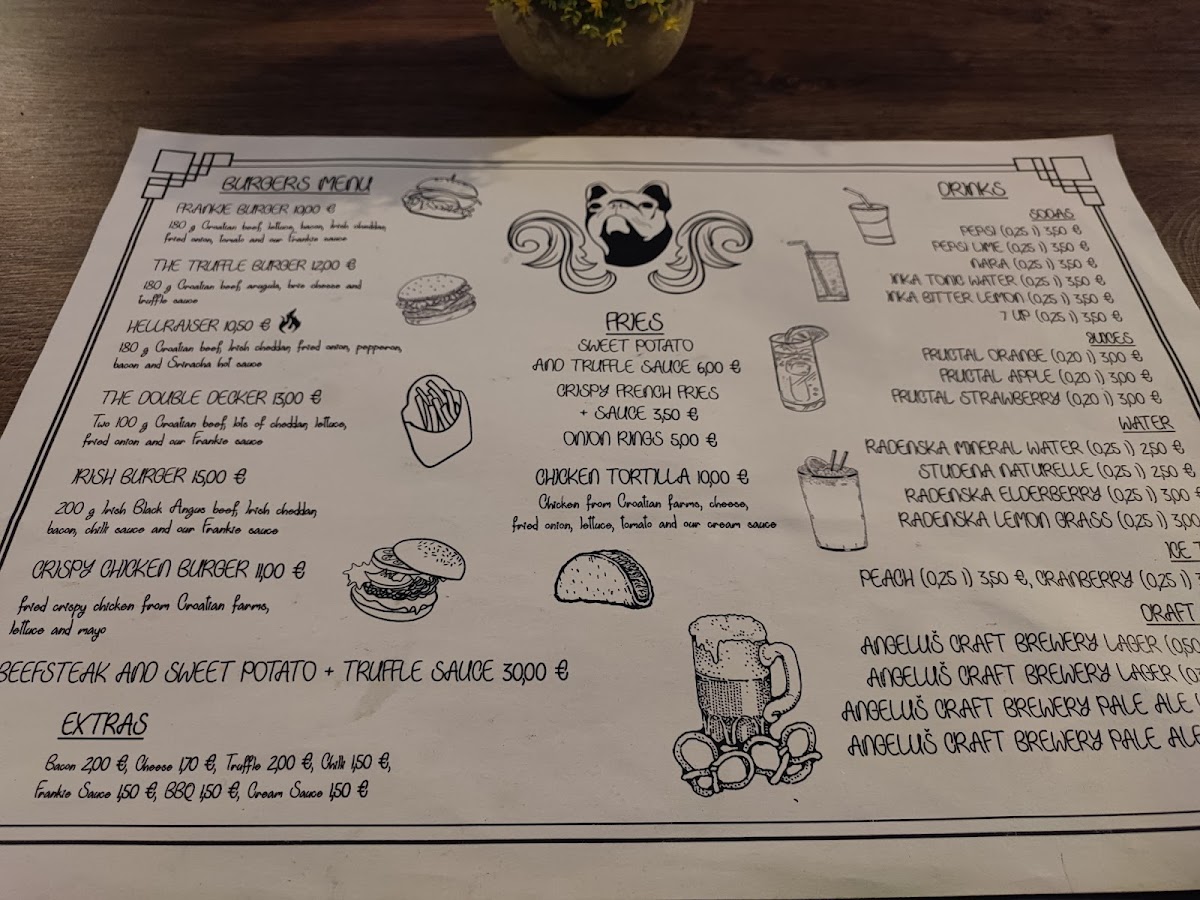 BURGERS MENU
FRANKIE BURGER 10,00 €
180 g Croatian beef, lettuce, bacon, Irish cheddar,
fried onion, tomato and our Frankie sauce
THE TRUFFLE BURGER 12,00 €
180 g Croatian beef, arugula, brie cheese and
truffle sauce
HELLRAISER 10,50 €
180 g Croatian beef, Irish cheddar, fried onion, pepperoni,
bacon and Sriracha hot sauce
THE DOUBLE DECKER 13,00 €
Two 100 g Croatian beef, lots of cheddar, lettuce,
fried onion and our Frankie sauce
IRISH BURGER 15,00 €
200 g Irish Black Angus beef, Irish cheddar,
bacon, chilli sauce and our Frankie sauce
CRISPY CHICKEN BURGER 11,00 €
fried crispy chicken from Croatian farms,
lettuce and mayo
BEEFSTEAK AND SWEET POTATO + TRUFFLE SAUCE 30,00 €
EXTRAS
Bacon 2,00 €, Cheese 1,70 €, Truffle 2,00 €, Chilli 1,50 €,
Frankie Sauce 1,50 €, BBQ 1,50 €, Cream Sauce 1,50 €
FRIES
SWEET POTATO
AND TRUFFLE SAUCE 6,00 €
CRISPY FRENCH FRIES
+ SAUCE 3,50 €
ONION RINGS 5,00 €
CHICKEN TORTILLA 10,00 €
Chicken from Croatian farms, cheese,
fried onion, lettuce, tomato and our cream sauce
DRINKS
SODAS
PEPSI (0,25 l) 3,50 €
PEPSI LIME (0,25 l) 3,50 €
NARA (0,25 l) 3,50 €
INKA TONIC WATER (0,25 l) 3,50 €
INKA BITTER LEMON (0,25 l) 3,50 €
7 UP (0,25 l) 3,50 €
JUICES
FRUCTAL ORANGE (0,20 l) 3,00 €
FRUCTAL APPLE (0,20 l) 3,00 €
FRUCTAL STRAWBERRY (0,20 l) 3,00 €
WATER
RADENSKA MINERAL WATER (0,25 l) 2,50 €
STUDENA NATURELLE (0,25 l) 2,50 €
RADENSKA ELDERBERRY (0,25 l) 3,00
RADENSKA LEMON GRASS (0,25 l) 3,00
ICE T
PEACH (0,25 l) 3,50 €, CRANBERRY (0,25 l) 3
CRAFT
ANGELUŠ CRAFT BREWERY LAGER (0,50
ANGELUŠ CRAFT BREWERY LAGER (0,
ANGELUŠ CRAFT BREWERY PALE ALE
ANGELUŠ CRAFT BREWERY PALE ALE